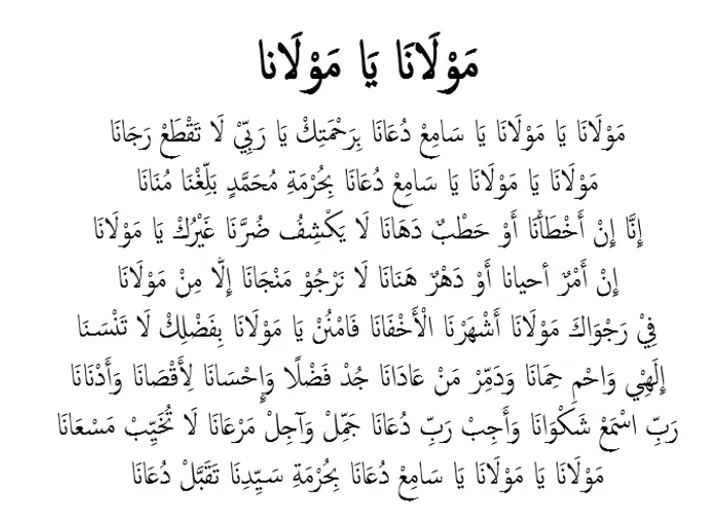 مَوْلَانَا يَا مَوْلَانا
مَوْلَانَا يَا مَوْلَانَا يَا سَامِعْ دُعَانَا بِرَحْمَتِكْ يَا رَبِّيْ لَا تَقْطَعْ رَجَانَا
مَوْلَانَا يَا مَوْلَانَا يَا سَامِعْ دُعَانَا بِحُرْمَةِ مُحَمَّدٍ بَلِّغْنَا مُنَانَا
إِنَّا إِنْ أَخْطَأْنَا أَوْ حَطْبٌ دَهَانَا لَا يَكْشِفُ ضُرَّنَا غَيْرُكْ يَا مَوْلَانَا
إِنْ أَمْرٌ أحيانا أَوْ دَهْرٌ هَنَانَا لَا نَرْجُوْ مَنْجَانَا إِلَّا مِنْ مَوْلَانَا
فِيْ رَجْوَاكَ مَوْلَانَا أَشْهَرْنَا الْأَخْفَانَا فَامْنُنْ يَا مَوْلَانَا بِفَضْلِكْ لَا تَنْسَنَا
إِلَهِيْ وَاحْمِ حِمَانَا وَدَمِّرْ مَنْ عَادَانَا جُدْ فَضْلًا وَإِحْسَانَا لِأَقْصَانَا وَأَدْنَانَا
رَبِّ اسْمَعْ شَكْوَانَا وَأَجِبْ رَبِّ دُعَانَا جَمِّلْ وَآجِلْ مَرْعَانَا لَا تُخَيِّبْ مَسْعَانَا
مَوْلَانَا يَا مَوْلَانَا يَا سَامِعْ دُعَانَا بِحُرْمَةِ سَيِّدِنَا تَقَبَّلْ دُعَانَا